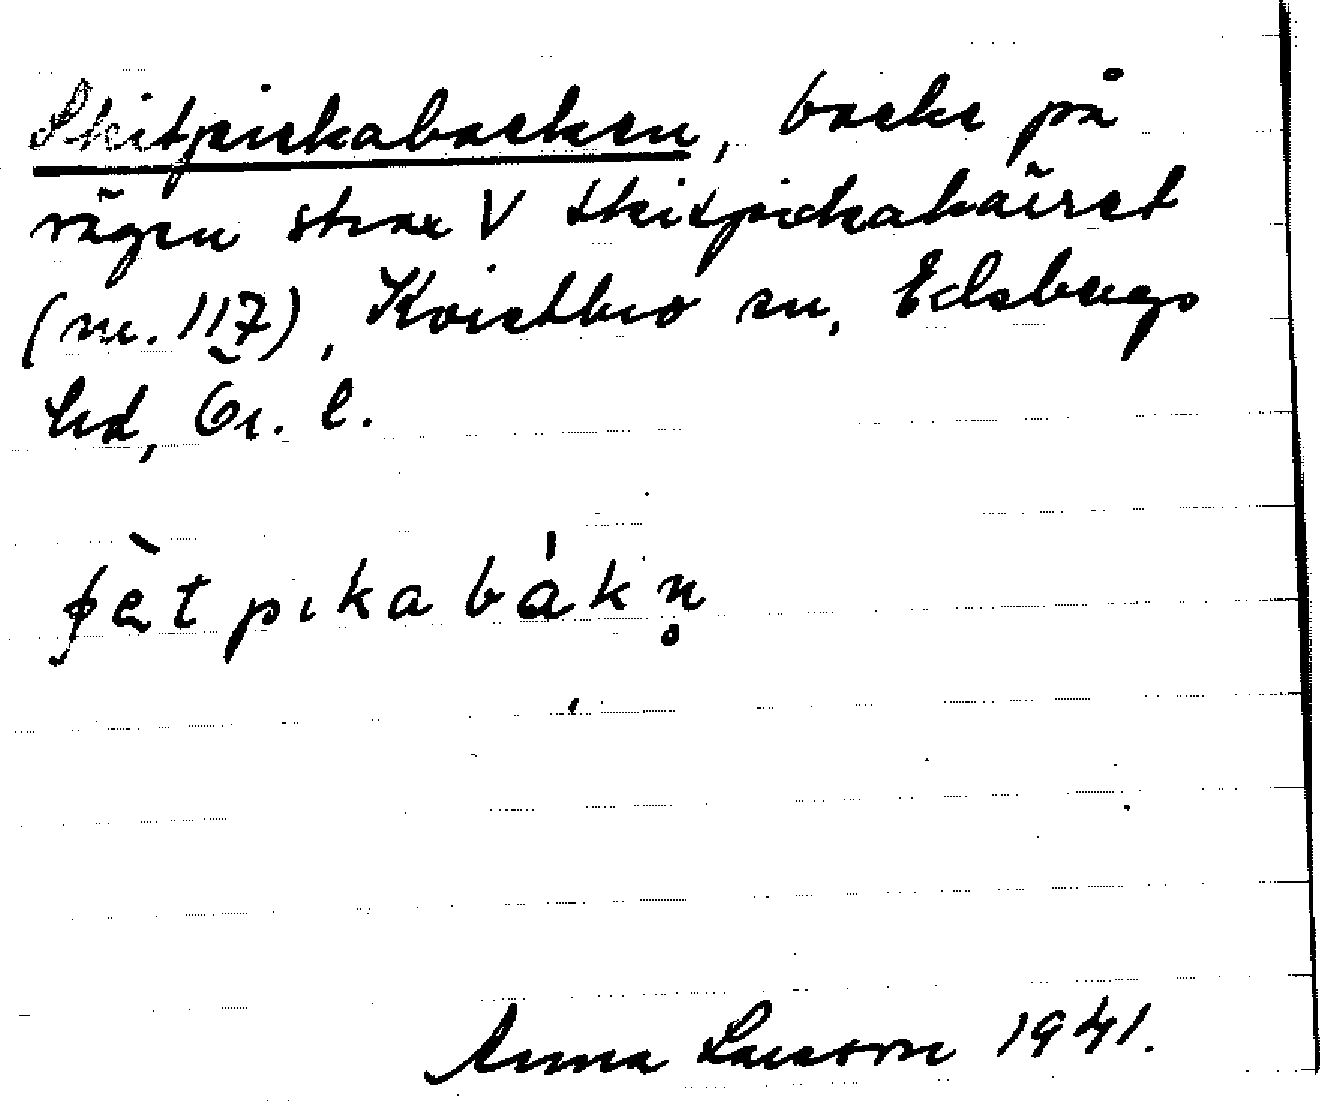 Skitpickabacken, backe på
vägen strax V Skitpickakärret
(nr. 117), Kvistbro sn, Edsbergs
hd, Ör. l.
ʃètpıkabákn̥
Anna Larsson 1941.